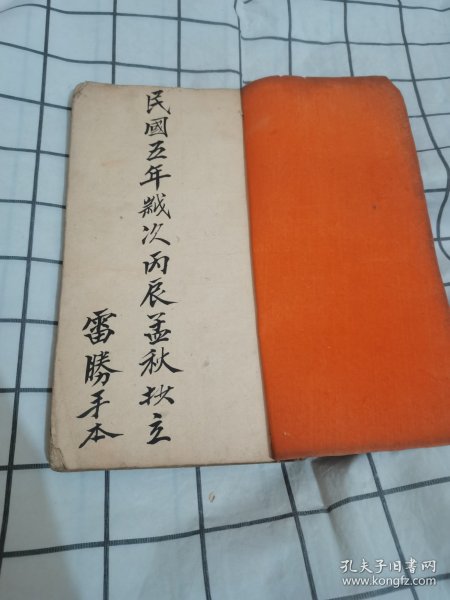 民國五年歲次丙辰孟秋抄立
雷勝手本
孔夫子旧书网
www.kongfz.com